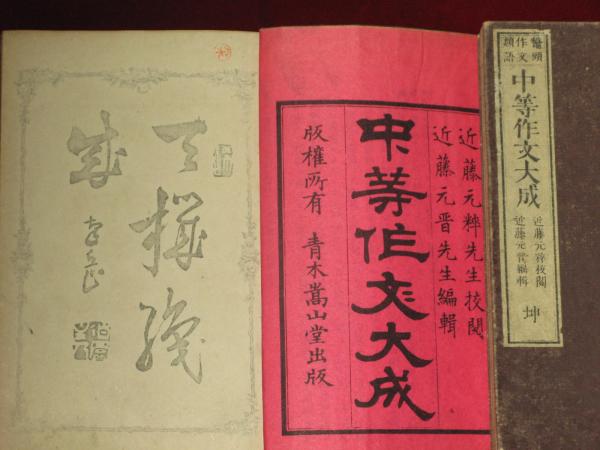 近藤元粹先生校閲
近藤元晋先生編輯
中等作文大成
版權所有 青木嵩山堂出版
鼇頭作文類語
中等作文大成
近藤元粹校閲
近藤元晋編輯
坤
天機織
成